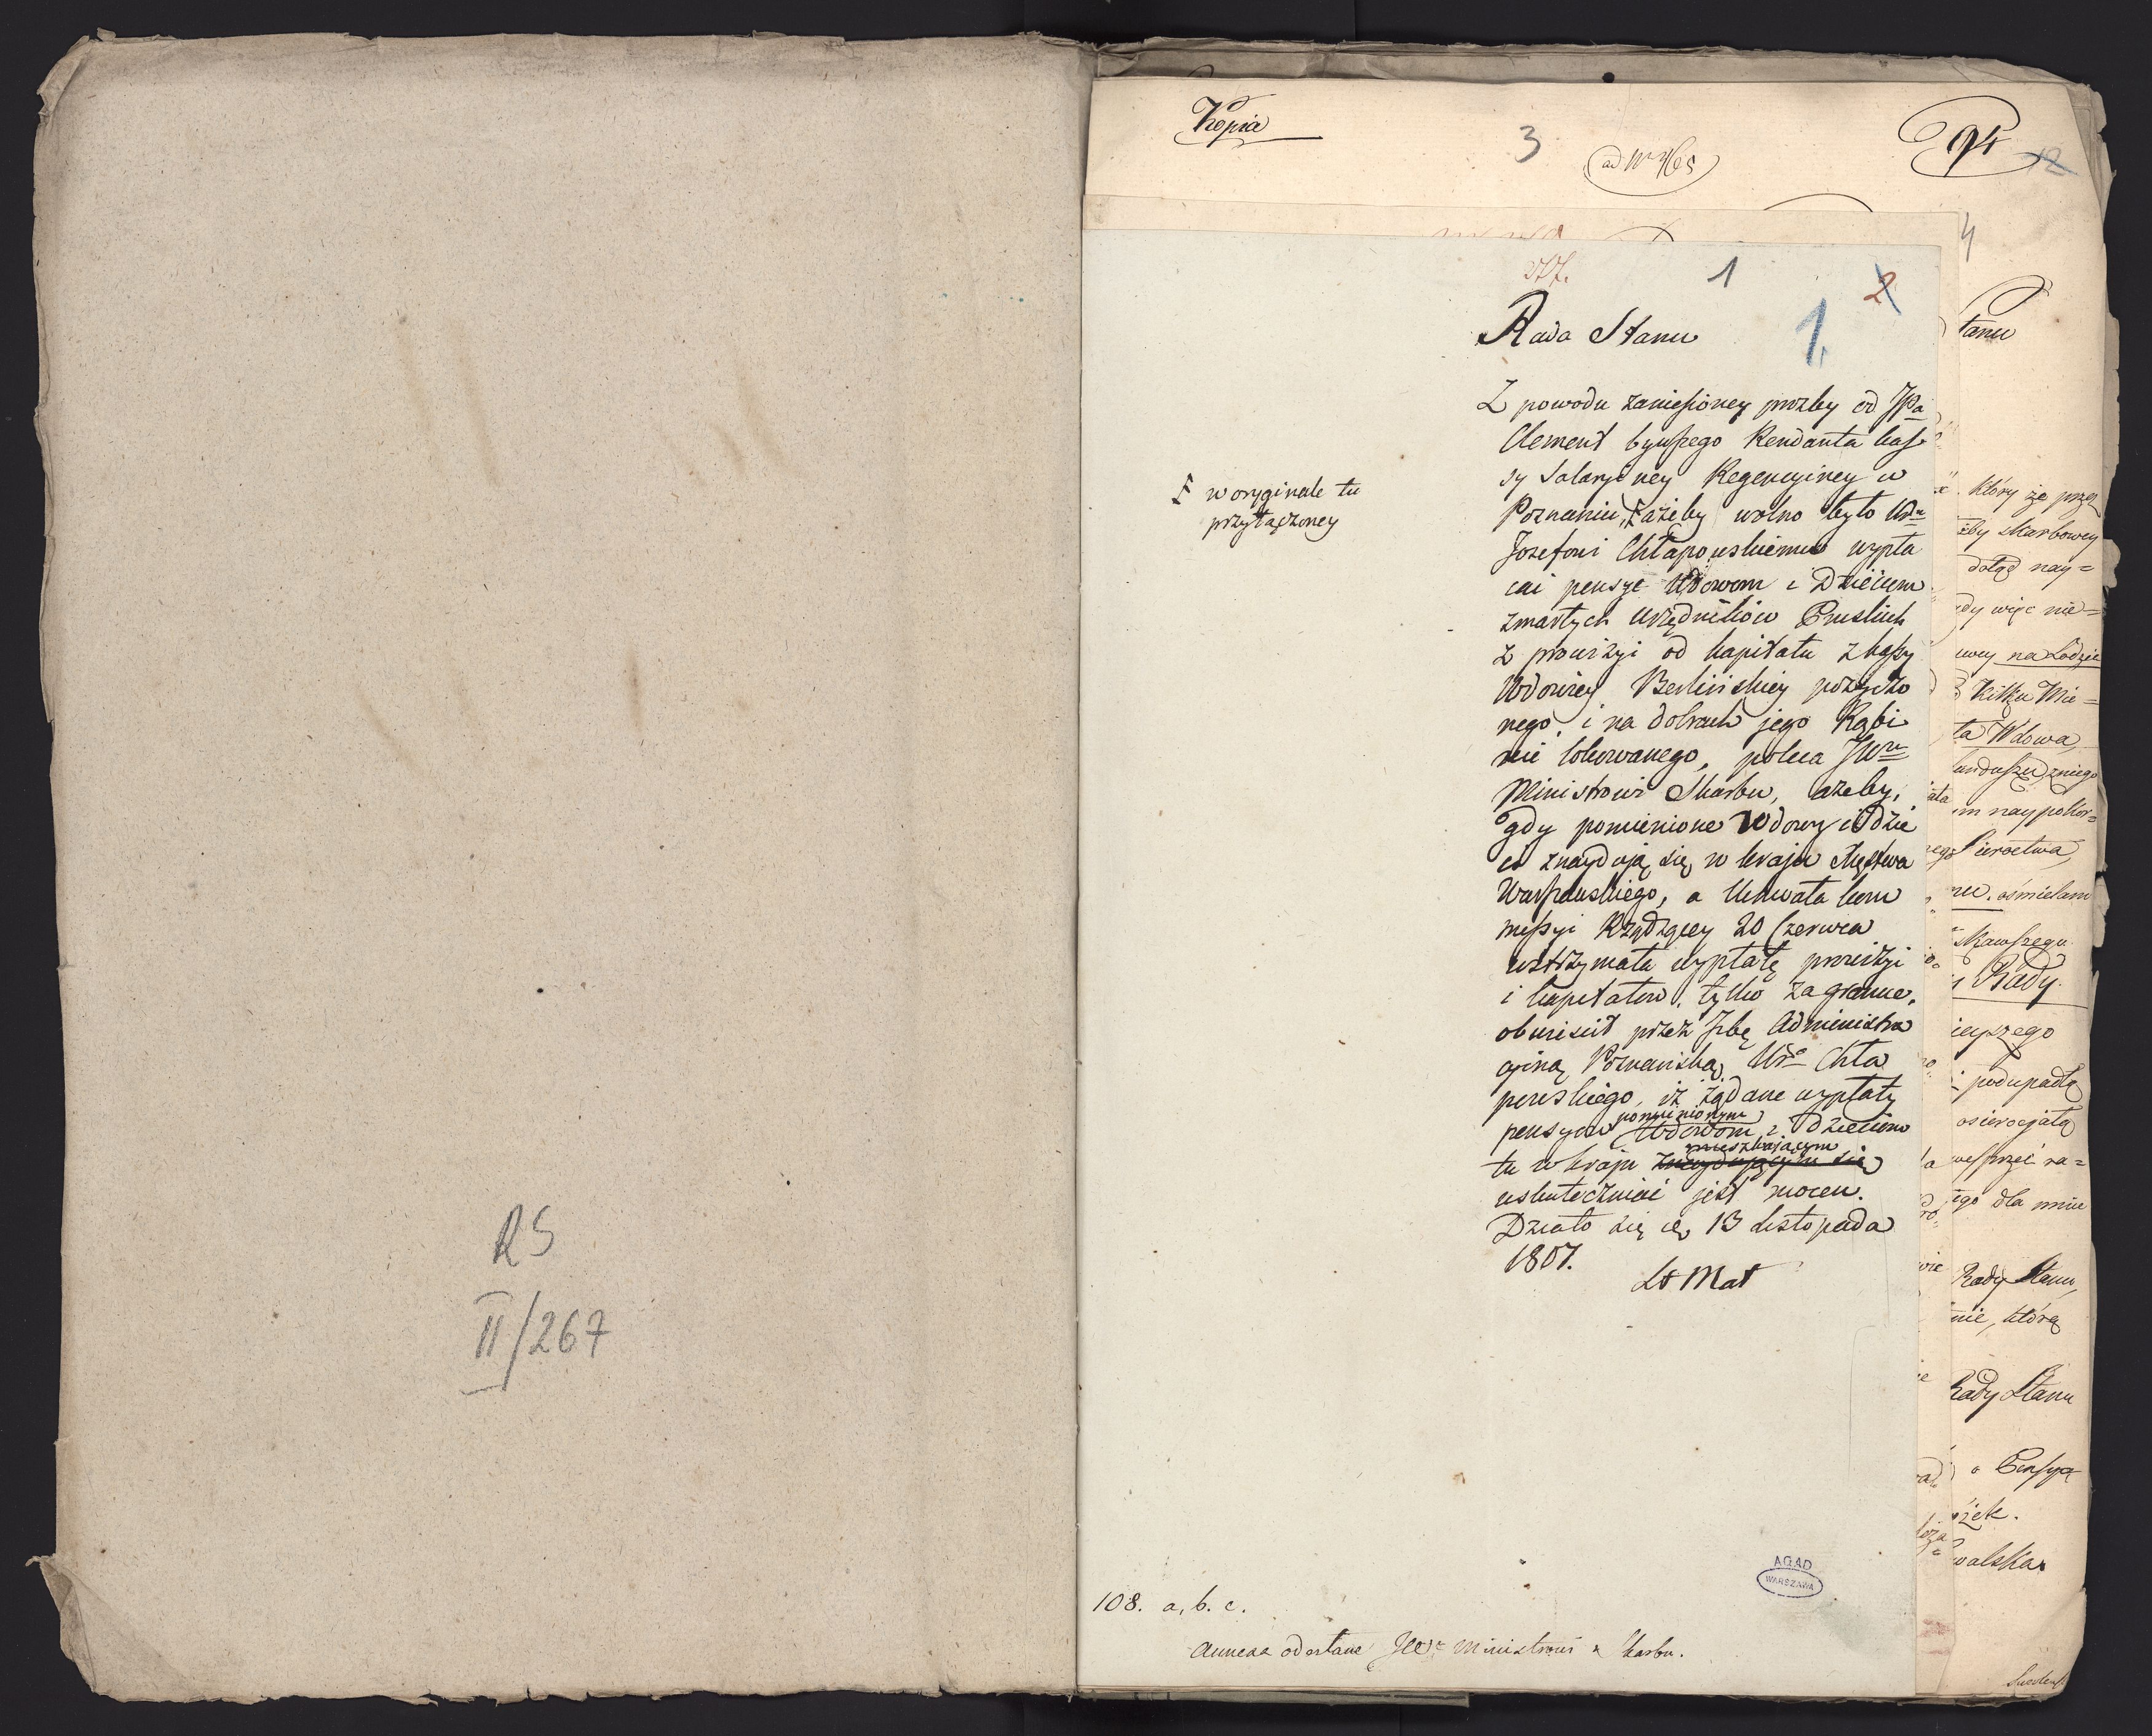 RS
II/267
Kopia
3
94
12
4
1
2
1.
Rada Stanu
Z powodu zaniesioney prozby od JPa
Clement bywszego Rendanta kas
sy Salaryiney Regencyiney w
Poznaniu, F ażeby wolno było Wu
Jozefowi Chłapowskiemu wypła
cać pensye Wdowom i Dzieciom
zmarłych Urzędników Pruskich
z prowizyi od kapitału z kassy
Wdowiey Berlińskiey pożyczo
nego, i na dobrach jego Rąbi
nie lokowanego, poleca JWu
Ministrowi Skarbu, ażeby,
gdy pomienione Wdowy i dzie
ci znayduią się w kraju Xięstwa
Warszawskiego, a Uchwała Kom
missyi Rządzącey 20 Czerwca
wstrzymała wypłatę prowizyi
i kapitałow, tylko za granicę,
obwieścił przez Izbę Administra
cyiną Poznańską, Wo Chła
powskiego, iż żądane wypłaty
pensyow pomienionym Wdowom i dzieciom
tu w kraju znayduiącym się mieszkaiącym
uskuteczniać jest mocen.
Działo się się 13 Listopada
1807.
Lt Mat
F w oryginale tu
przyłączoney
108. a, b. c.
Annexa odesłane JWu Ministrowi Skarbu.
AGAD
WARSZAWA
tanu
Który że przez
żby Skarbowey
dotąd nay=
edy więc nie=
na Łodzie
Kilku Mie=
ta Wdowa,
funduszu, z niego
m naypokor=
Sieroctwa,
nu. ośmielam
skawszego
Rady.
ieyszego
podupadłą
osierociałą
wesprzeć ra=
ego dla mnie
Rady Stanu,
nie, którą
Rady Stanu
o Pensyą
żek.
walska